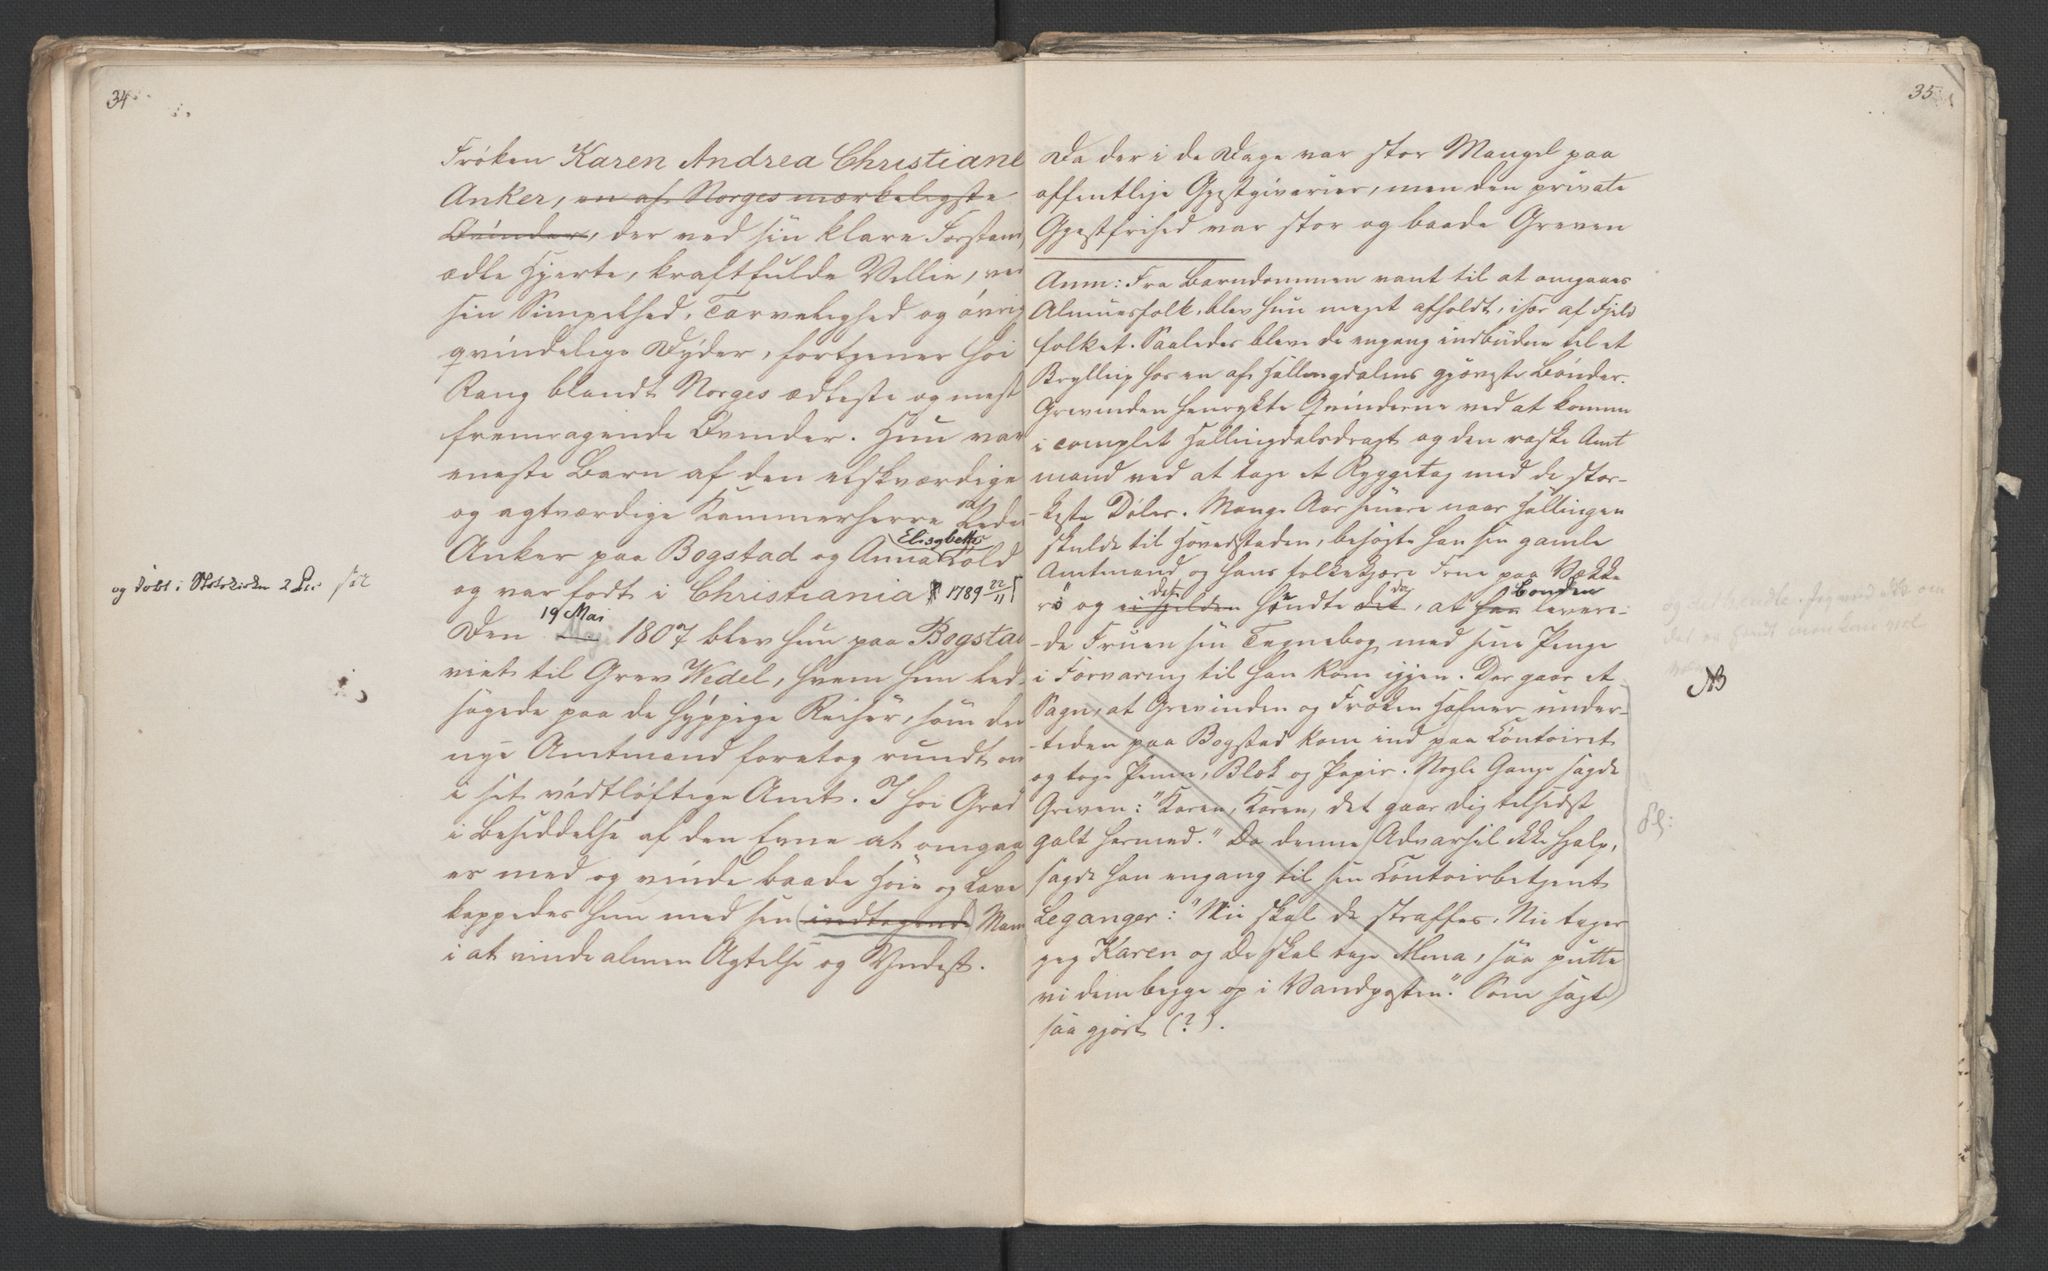 34
Frøken Karen Andrea Christiane
Anker, en af Norges mærkeligste
Qvinder, der ved sin klare Forstand,
ædle Hjerte, kraftfulde Villie, ved
sin Simpelhed, Tarvelighed og øvrig
qvindelige Dyder, fortjener høi
Rang blandt Norges ædleste og mest
fremragende Qvinder. Hun var
eneste Barn af den elskværdige
og agtværdige Kammerherre Peder
Anker paa Bogstad og Anna Elisabeth Cold
og var født i Christiania 1789 22/11
og døbt i Slotskirken 2 Dec
Den 19 Mai 1807 blev hun paa Bogstad
viet til Grev Wedel, hvem hun led-
sagede paa de hyppige Reiser, som den
nye Amtmand foretog rundt om
i sit vidtløftige Amt. I høi Grad
i Besiddelse af den Evne at omgaa
es med og vinde baade Høie og Lave
kappedes hun med sin (indtagende) Mand
i at vinde almen Agtelse og Yndest.
35
Da der i de Dage var stor Mangel paa
offentlige Gjestgiverier, men den private
Gjestfrihed var stor og baade Greven
Anm: Fra Barndommen vant til at omgaaes
Almuesfolk, blev hun meget afholdt, især af Fjeld
folket. Saaledes bleve de engang indbudne til et
Bryllup hos en af Hallingdalens gjæveste Bønder.
Grevinden henrykte Qvinderne ved at komme
i complet Hallingdalsdragt og den raske Amt
mand ved at tage et Ryggetag med de stær-
-keste Døler. Mange Aar senere naar Hallingen
skulde til Hovedstaden, besøgte han sin gamle
Amtmand og hans folkekjære Frue paa Vække
rö og det ei sjelden hændte det da, at han Bonden levere-
-de Fruen sin Tegnebog med sine Penge
i Forvaring til han kom igjen. Der gaar et
NB
Sagn, at Grevinden og Frøken Hafner under-
-tiden paa Bogstad kom ind paa Contoiret
og toge Penne, Blæk og Papir. Nogle Gange sagde
Greven: "Karen, Karen, det gaar dig tilsidst
galt hermed." Da denne Advarsel ikke hjalp,
sagde han engang til sin Contoirbetjent
Leganger: "Nu skal de straffes. Nu tager
jeg Karen og De skal tage Mina, saa putte
vi dem begge op i Vandposten." Som sagt
saa gjort (?).